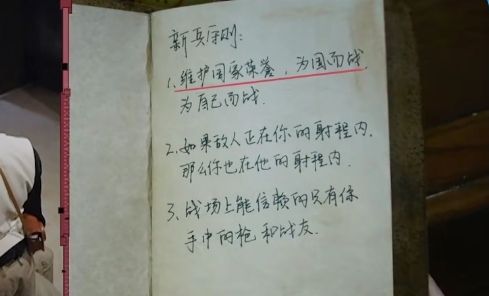 新兵原则:
1、维护国家荣誉，为国而战.
为自己而战.
2、如果敌人正在你的射程内.
那么你也在他的射程内.
3、战场上能信赖的只有你
手中的枪和战友.